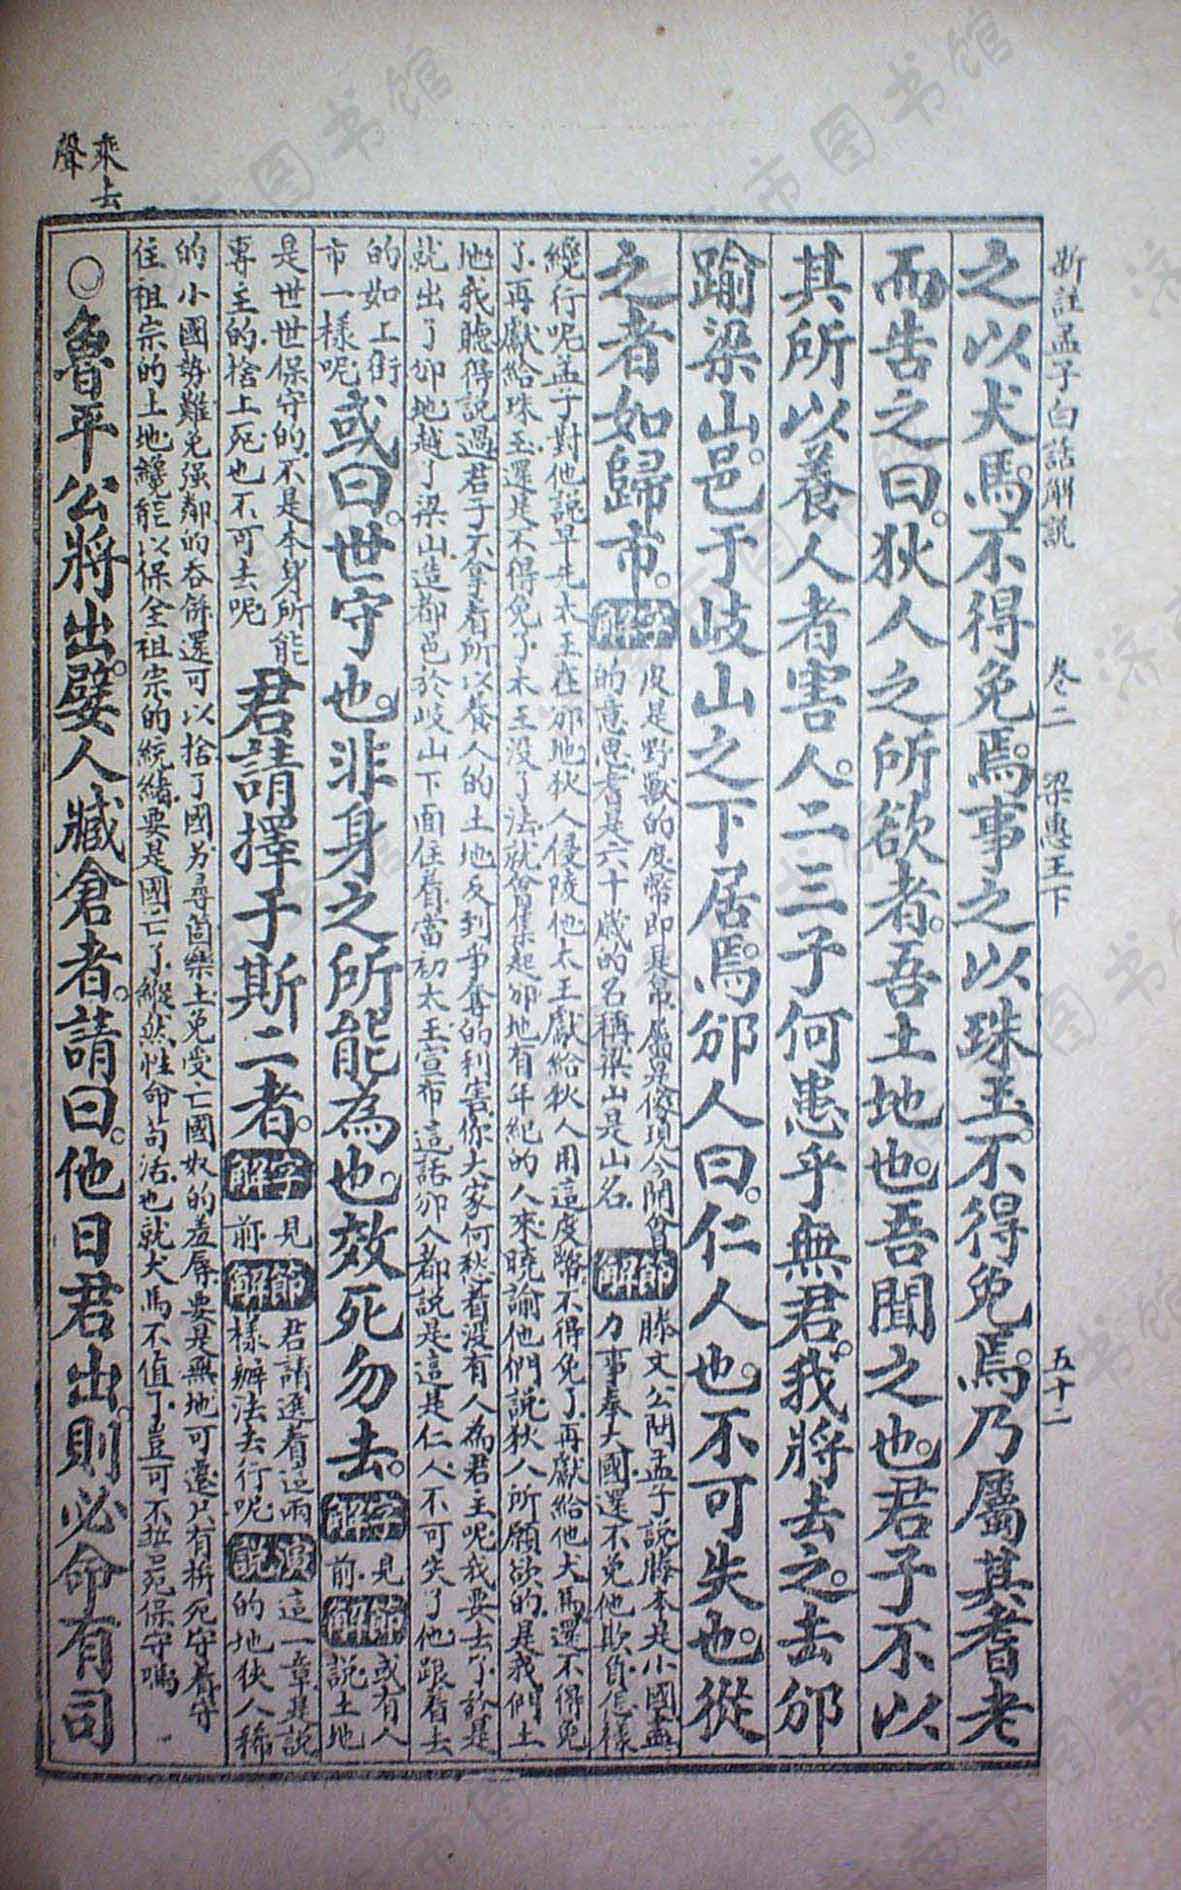 新註孟子白話解說　卷二　梁惠王下　五十二
之以犬馬。不得免焉。事之以珠玉。不得免焉。乃屬其耆老
而告之曰。狄人之所欲者。吾土地也。吾聞之也。君子不以
其所以養人者害人。二三子何患乎無君。我將去之。去邠
踰梁山。邑于岐山之下居焉。邠人曰。仁人也。不可失也。從
之者如歸市。
字解
皮是野獸的皮幣即是帛屬是像現今開會
的意思耆是六十歲的名稱梁山是山名
節解
滕文公問孟子說滕本是小國盡
力事奉大國還不免他欺負怎樣
纔行呢孟子對他說早先太王在邠地狄人侵陵他太王獻給狄人用這皮幣不得免了再獻給他犬馬還不得免
了再獻給珠玉還是不得免了太王沒了法就會集起邠地有年紀的人來曉諭他們說狄人所願欲的是我們土
地我聽得說過君子不拿着所以養人的土地反到爭奪的利害你大家何愁着沒有人為君主呢我要去了於是
就出了邠地越了梁山造都邑於岐山下面住着當初太王宣布這話邠人都說是這是仁人不可失了他跟着去
的如上街
市一樣呢
或曰。世守也。非身之所能為也。效死勿去。
字解
見
前
節解
或有人
說土地
是世世保守的不是本身所能
專主的捨上死也不可去呢
君請擇于斯二者。
字解
見
前
節解
君請選看這兩
樣辦法去行呢
演說
這一章是說
的地狹人稀
的小國勢難免强鄰的吞併還可以捨了國另尋箇樂土免受亡國奴的羞辱要是無地可遷只有拚死守着守
住祖宗的土地纔能以保全祖宗的統緒要是國亡了縱然性命苟活也就犬馬不值了豈可不拚死保守嗎
○魯平公將出。嬖人臧倉者。請曰。他日君出。則必命有司
乘去
聲